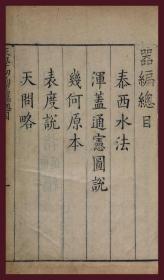 器編總目
泰西水法
渾蓋通憲圖說
幾何原本
表度說
天問略